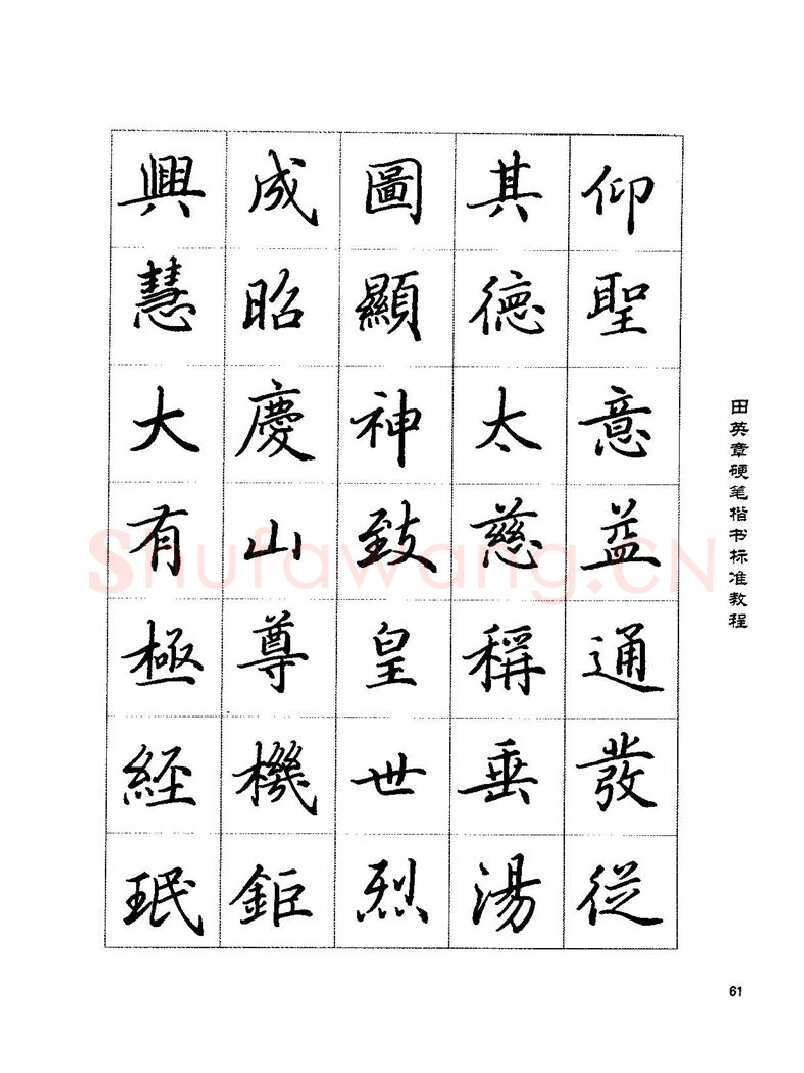 仰聖意益通發從
其德太慈稱垂湯
圖顯神致皇世烈
成昭慶山尊機鉅
興慧大有極經珉
田英章硬笔楷书标准教程
Shufawang.CN
61